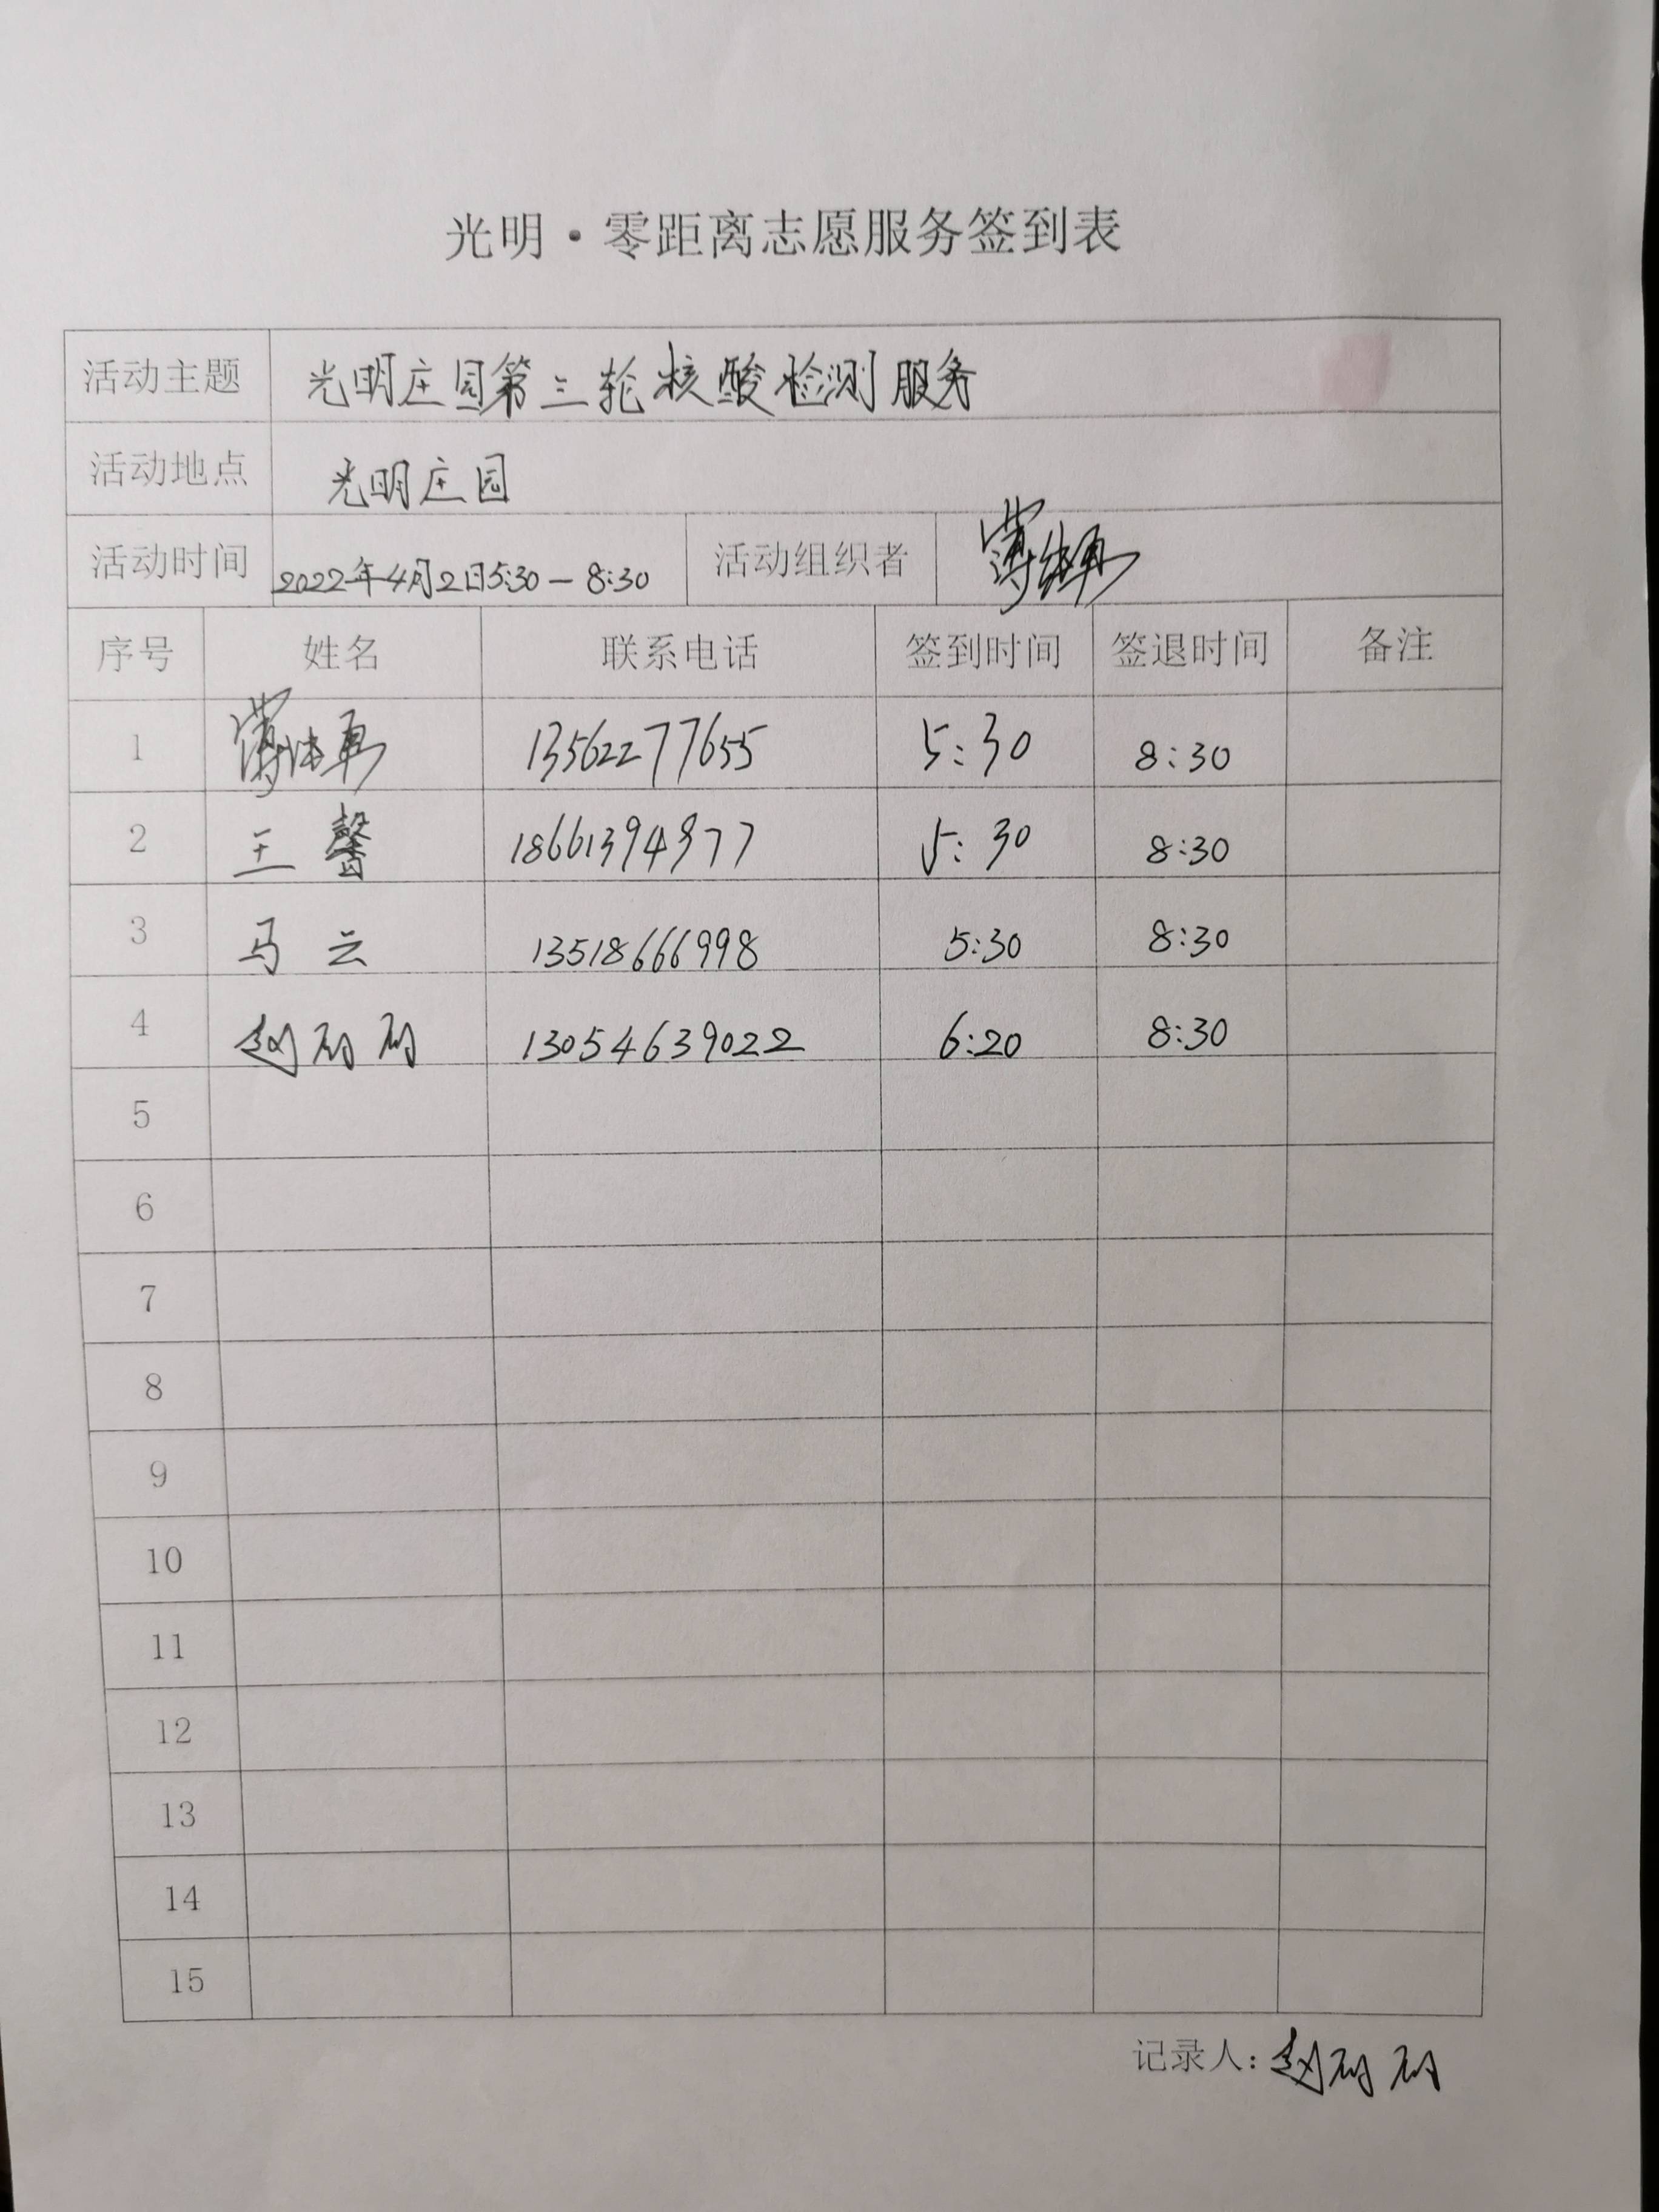 光明·零距离志愿服务签到表
活动主题 光明庄园第三轮核酸检测服务
活动地点 光明庄园
活动时间 2022年4月2日5:30-8:30 活动组织者
序号 姓名 联系电话 签到时间 签退时间 备注
1 13562277655 5:30 8:30
2 王馨 18661394977 5:30 8:30
3 马云 13518666998 5:30 8:30
4 赵 13054639022 6:20 8:30
5
6
7
8
9
10
11
12
13
14
15
记录人: 赵